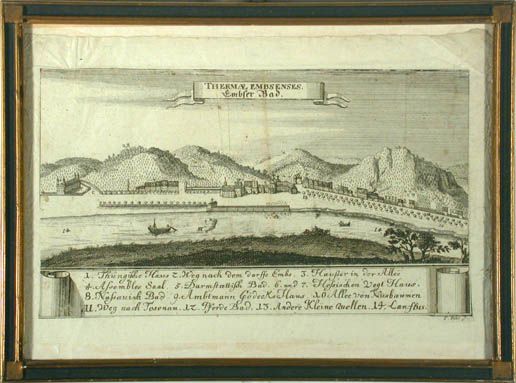 THERMÆ EMBSENSES.
Embser Bad.
1. Thüngische Haus 2. Weg nach dem dorffe Embs. 3. Häusser in der Allee
4. Assemblee Saal. 5. Darmstattisch Bad. 6. und 7. Hessischen Vogt Haus.
8. Nassauisch Bad 9. Ambtmann Gödecks Haus. 10. Allee von Nusbaumen
11. Weg nach Dosenau. 12. Pferde Bad. 13. Andere Kleine Quellen. 14.